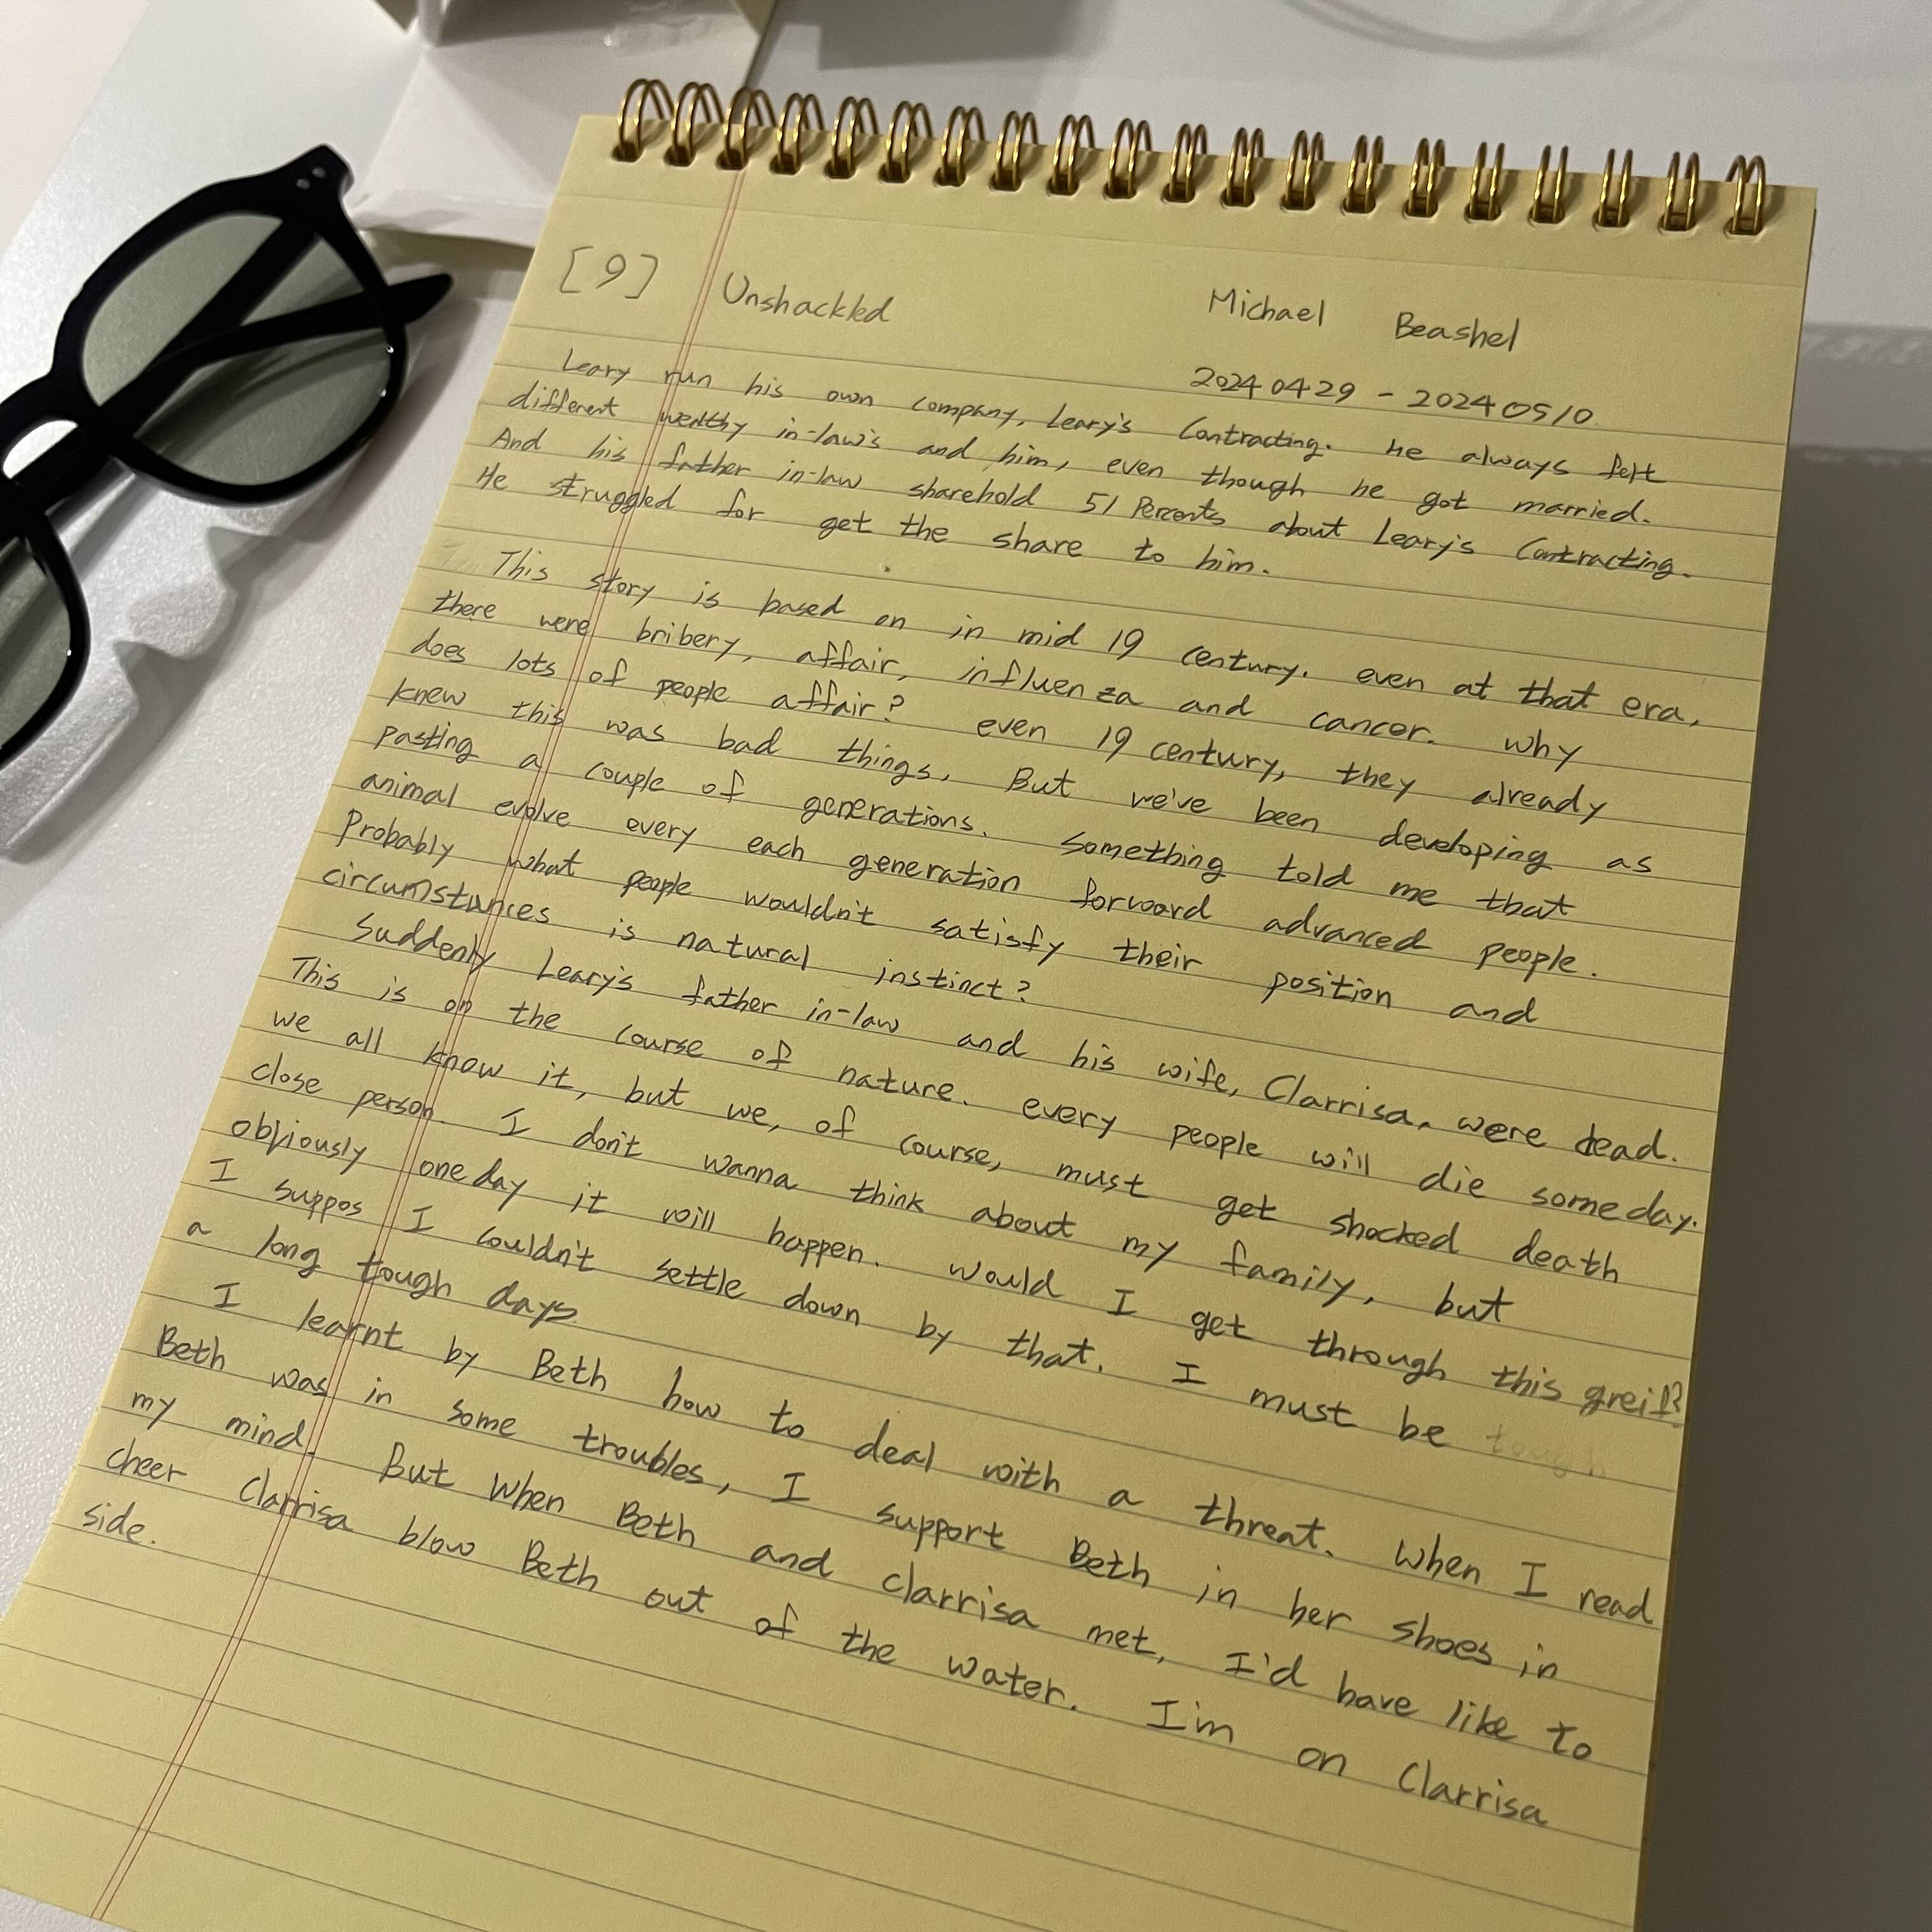 [9] Unshackled Michael Beashel
2024 04 29 - 2024 05 10
Leary run his own company, Leary's Contracting. He always felt
different wealthy in-law's and him, even though he got married.
And his father in-law sharehold 51 Percents about Leary's Contracting.
He struggled for get the share to him.
This story is based on in mid 19 century. even at that era,
there were bribery, affair, influenza and cancer. Why
does lots of people affair? even 19 century, they already
knew this was bad things. But we've been developing as
pasting a couple of generations. Something told me that
animal evolve every each generation forward advanced people.
Probably what people wouldn't satisfy their position and
circumstances is natural instinct?
Suddenly Leary's father in-law and his wife, Clarrisa, were dead.
This is on the course of nature. every people will die someday.
we all know it, but we, of course, must get shocked death
close person. I don't wanna think about my family, but
obviously oneday it will happen. Would I get through this greif?
I suppos I couldn't settle down by that. I must be tough
a long tough days
I learnt by Beth how to deal with a threat. When I read
Beth was in some troubles, I support Beth in her shoes in
my mind. But When Beth and Clarrisa met, I'd have like to
cheer Clarrisa blow Beth out of the water. I'm on Clarrisa
side.